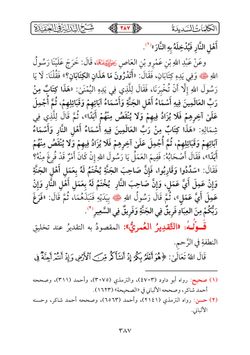 الكلمات السديدة ٣٨٧ شرح البداية في العقيدة
أَهْلِ النَّارِ فَيُدْخِلَهُ بِهِ النَّارَ»(١).
وَعَنْ عَبْدِ اللهِ بْنِ عَمْرِو بْنِ العَاصِ، قَالَ: خَرَجَ عَلَيْنَا رَسُولُ
اللهِ ﷺ وَفِي يَدِهِ كِتَابَانِ، فَقَالَ: «أَتَدْرُونَ مَا هَذَانِ الكِتَابَانِ؟» فَقُلْنَا: لَا يَا
رَسُولَ اللهِ إِلَّا أَنْ تُخْبِرَنَا، فَقَالَ لِلَّذِي فِي يَدِهِ اليُمْنَى: «هَذَا كِتَابٌ مِنْ
رَبِّ العَالَمِينَ فِيهِ أَسْمَاءُ أَهْلِ الجَنَّةِ وَأَسْمَاءُ آبَائِهِمْ وَقَبَائِلِهِمْ، ثُمَّ أُجْمِلَ
عَلَى آخِرِهِمْ فَلَا يُزَادُ فِيهِمْ وَلَا يُنْقَصُ مِنْهُمْ أَبَدًا»، ثُمَّ قَالَ لِلَّذِي فِي
شِمَالِهِ: «هَذَا كِتَابٌ مِنْ رَبِّ العَالَمِينَ فِيهِ أَسْمَاءُ أَهْلِ النَّارِ وَأَسْمَاءُ
آبَائِهِمْ وَقَبَائِلِهِمْ، ثُمَّ أُجْمِلَ عَلَى آخِرِهِمْ فَلَا يُزَادُ فِيهِمْ وَلَا يُنْقَصُ مِنْهُمْ
أَبَدًا»، فَقَالَ أَصْحَابُهُ: فَفِيمَ العَمَلُ يَا رَسُولَ اللهِ إِنْ كَانَ أَمْرٌ قَدْ فُرِغَ مِنْهُ؟
فَقَالَ: «سَدِّدُوا وَقَارِبُوا، فَإِنَّ صَاحِبَ الجَنَّةِ يُخْتَمُ لَهُ بِعَمَلِ أَهْلِ الجَنَّةِ
وَإِنْ عَمِلَ أَيَّ عَمَلٍ، وَإِنَّ صَاحِبَ النَّارِ يُخْتَمُ لَهُ بِعَمَلِ أَهْلِ النَّارِ وَإِنْ
عَمِلَ أَيَّ عَمَلٍ»، ثُمَّ قَالَ رَسُولُ اللهِ ﷺ بِيَدَيْهِ فَنَبَذَهُمَا، ثُمَّ قَالَ: «فَرَغَ
رَبُّكُمْ مِنَ العِبَادِ فَرِيقٌ فِي الجَنَّةِ وَفَرِيقٌ فِي السَّعِيرِ»(٢).
قَوْلُهُ: «التَّقْدِيرُ العُمُرِيُّ»: المقصودُ به التقديرُ عند تخليقِ
النطفةِ في الرَّحِمِ.
قال اللهُ تعالى: ﴿هُوَ أَعْلَمُ بِكُمْ إِذْ أَنشَأَكُم مِّنَ الْأَرْضِ وَإِذْ أَنتُمْ أَجِنَّةٌ فِي
(١) صحيح: رواه أبو داود (٤٧٠٣)، والترمذي (٣٠٧٥)، وأحمد (٣١١)، وصححه
أحمد شاكر، وصححه الألباني في «الصحيحة» (١٦٢٣).
(٢) حسن: رواه الترمذي (٢١٤١)، وأحمد (٦٥٦٣)، وصححه أحمد شاكر، وحسنه
الألباني.
٣٨٧